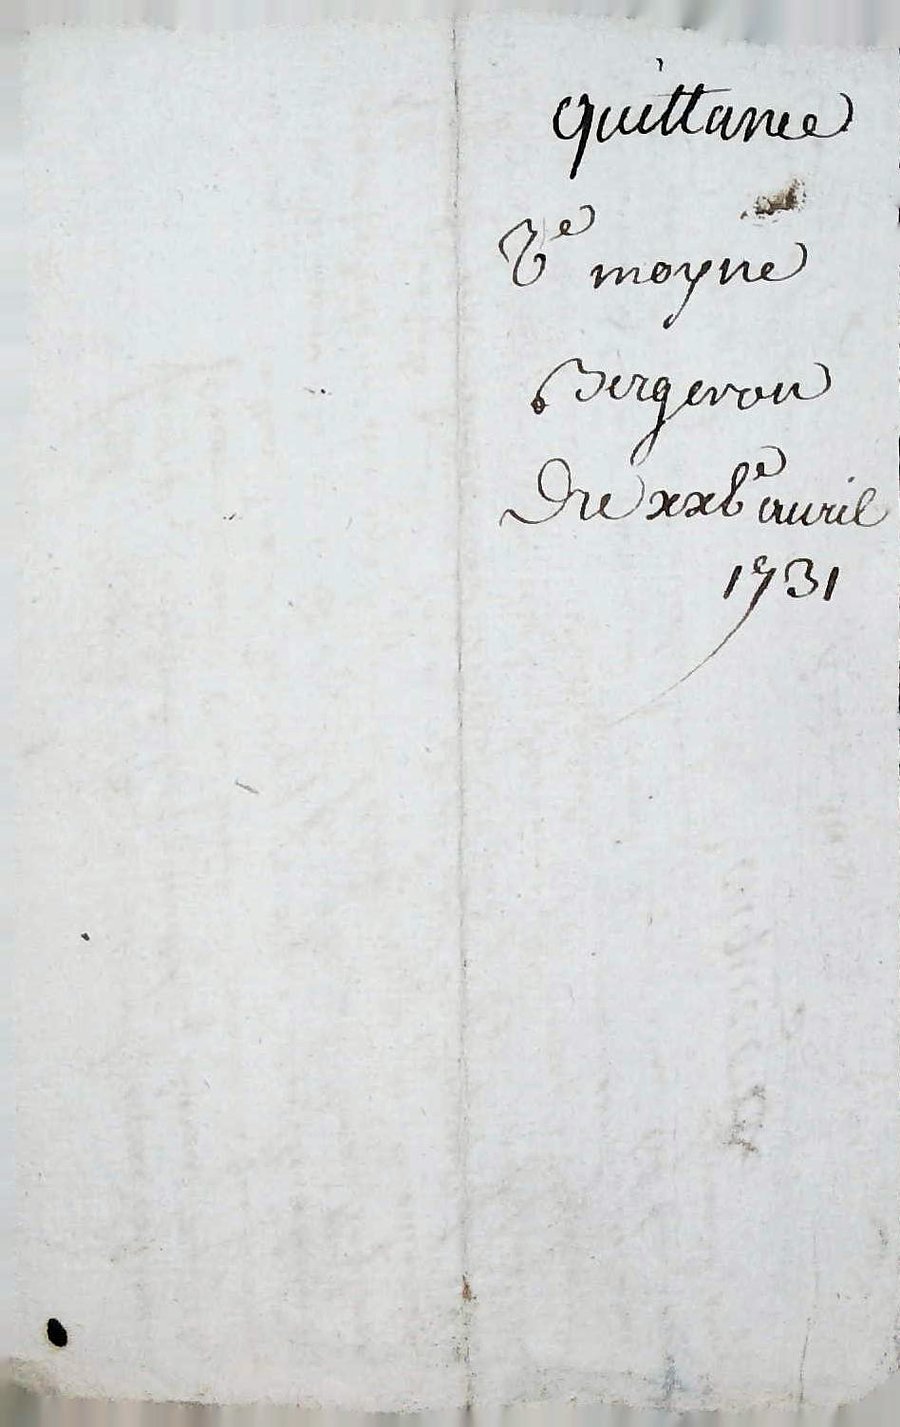 quittance
Ve moyne
Bergeron
Du xxve auril
1731